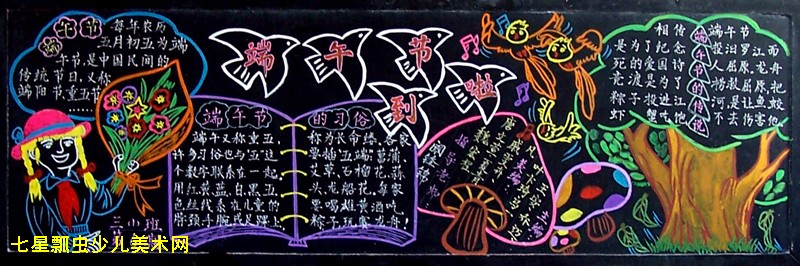 端午节
每年农历
五月初五为端
午节,是中国民间的
传统节日,又称
端阳节、重五节
……
端午节到啦
端午节的习俗
端午又称重五,
许多习俗也与"五"这
个数字联系在一起,
用红黄蓝白黑五
色丝线系在儿童的
脖颈手腕或足踝上,
称为长命缕,各家
要插"五端":菖蒲、
艾草、石榴花、蒜
头、龙船花。每家
要喝雄黄酒,吃
粽子,玩赛龙舟!
端午节的传说
相传端午节
是为了纪念投汨罗江而
死的爱国诗人屈原。龙舟
竞渡是为了捞救屈原,把
粽子投进江河,是让鱼蛟
虾蟹吃他不去伤害他
三小班
七星瓢虫少儿美术网